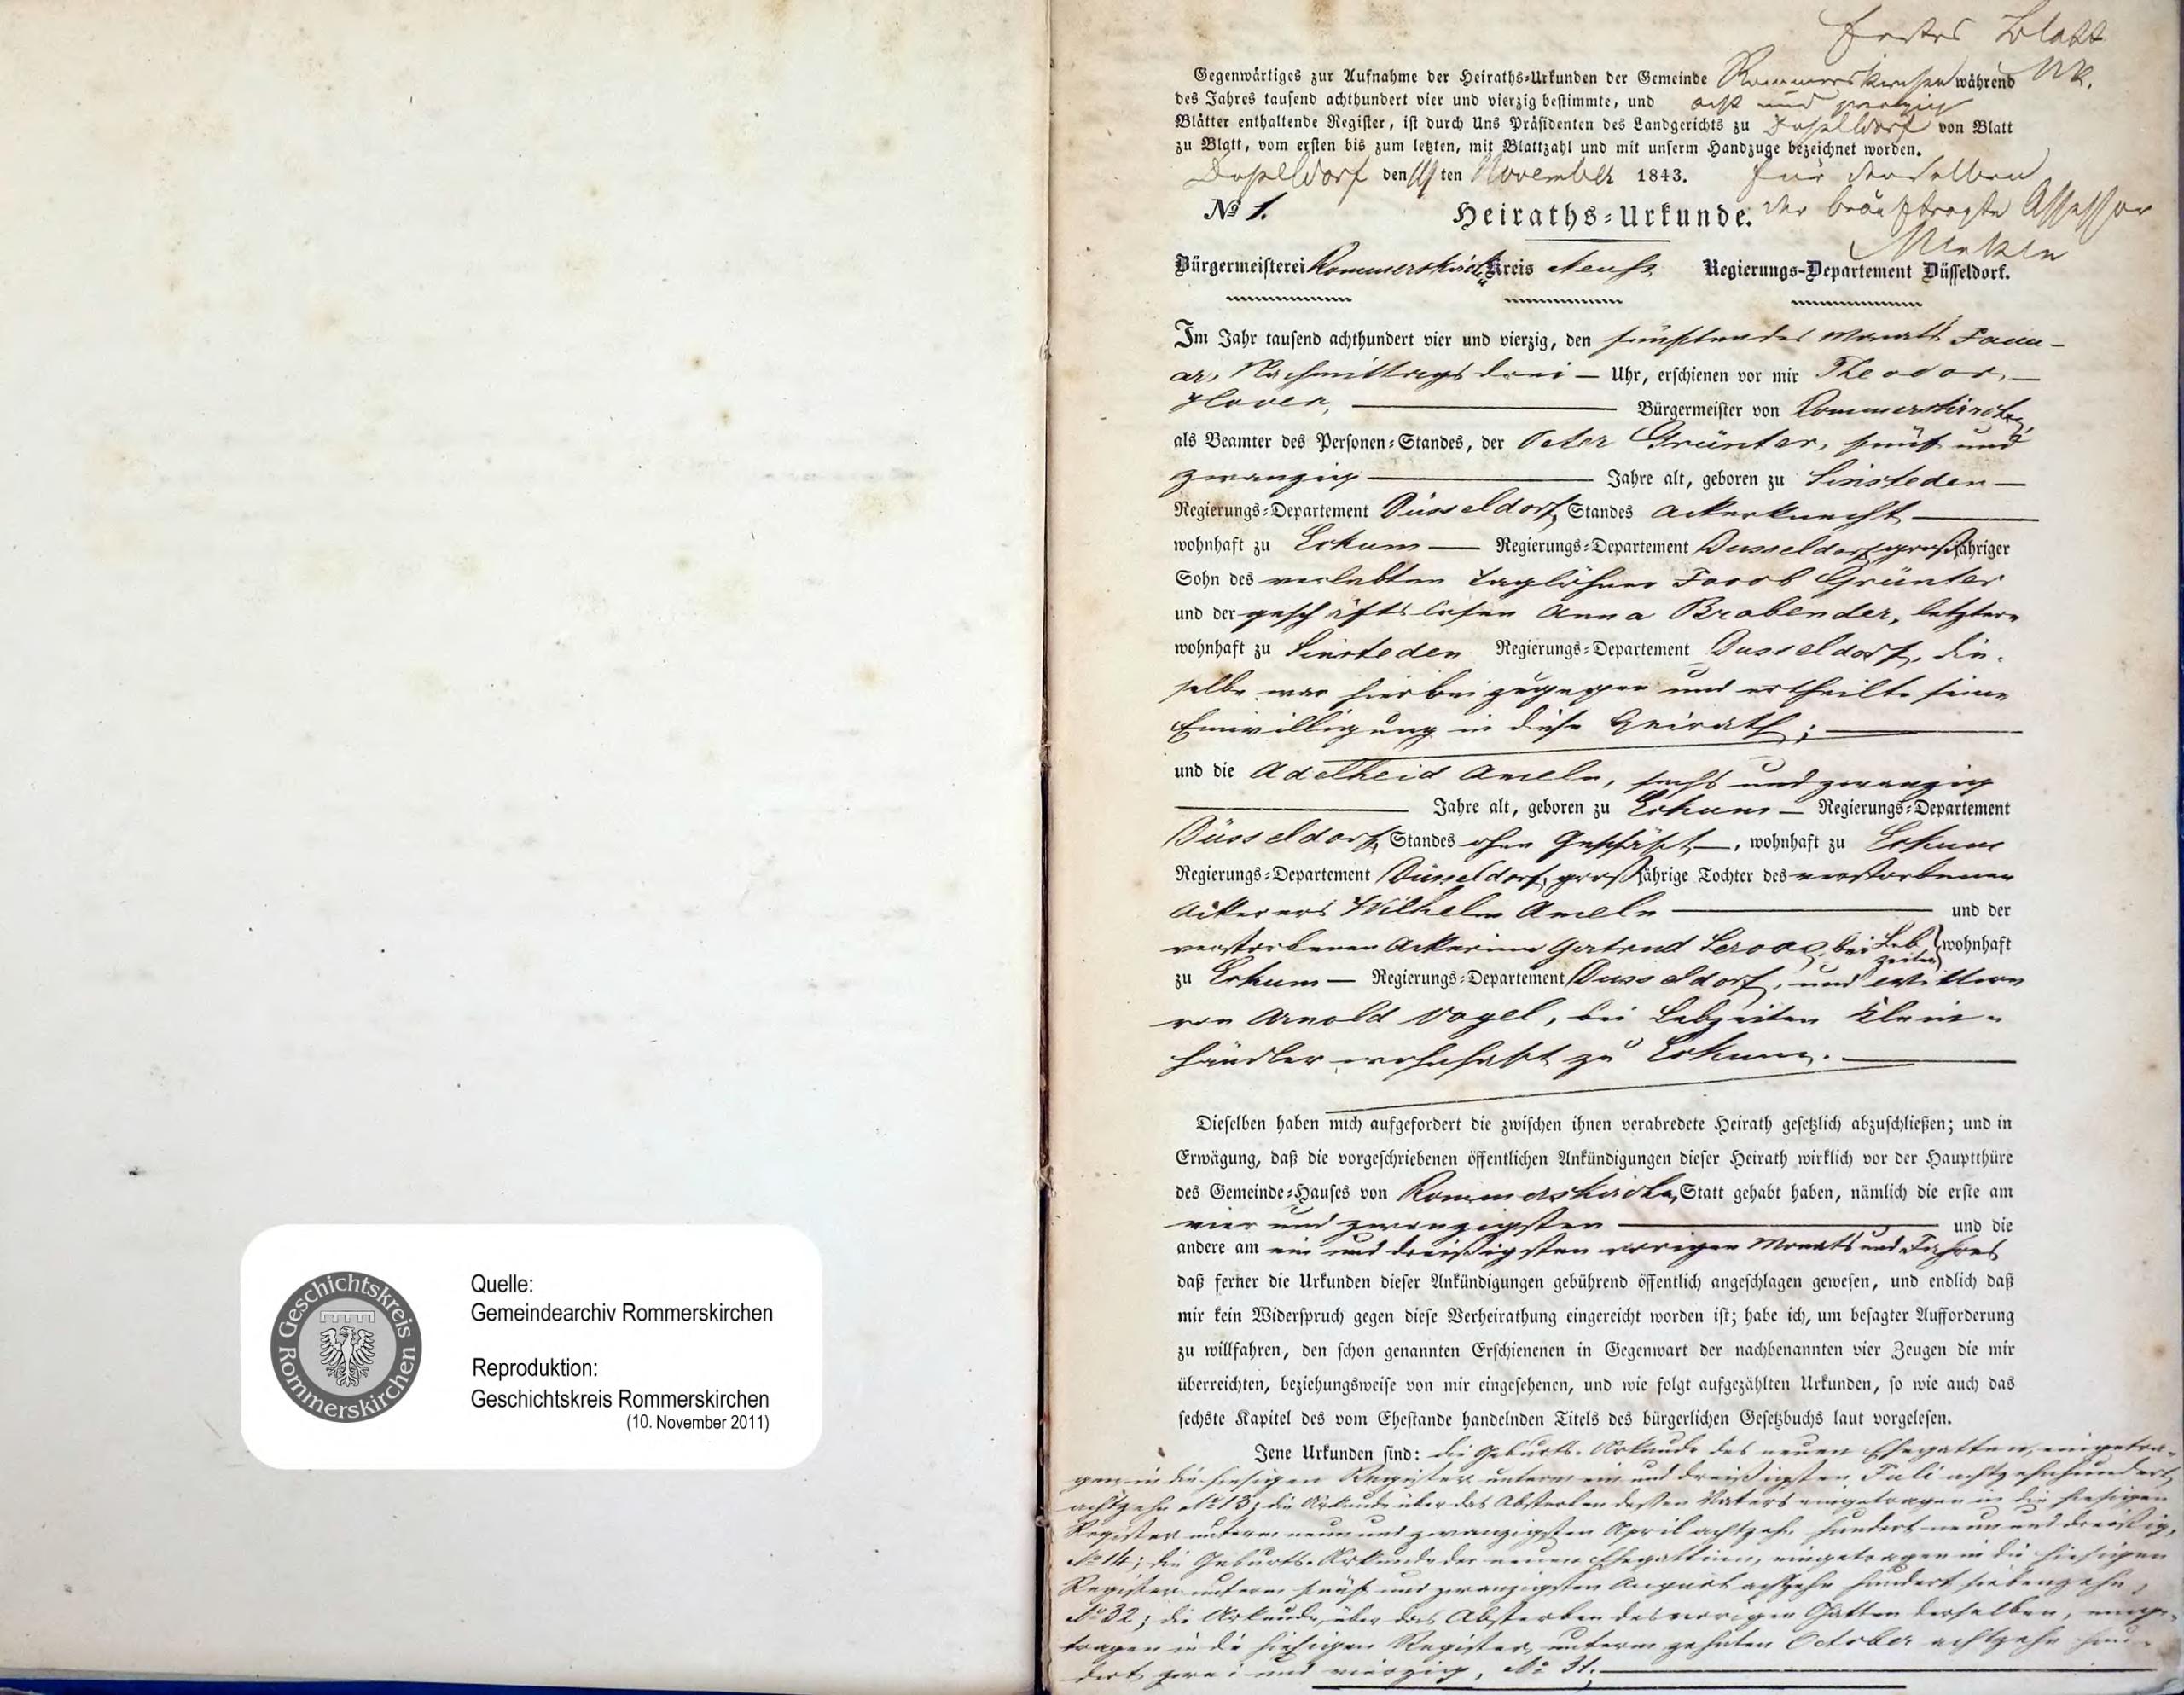 Quelle:
Gemeindearchiv Rommerskirchen
Reproduktion:
Geschichtskreis Rommerskirchen
(10. November 2011)
Geschichtskreis Rommerskirchen
Erstes Blatt
Gegenwärtiges zur Aufnahme der Heiraths-Urkunden der Gemeinde Rommerskirchen während
des Jahres tausend achthundert vier und vierzig bestimmte, und acht und zwanzig
Blätter enthaltende Register, ist durch Uns Präsidenten des Landgerichts zu Düsseldorf von Blatt
zu Blatt, vom ersten bis zum letzten, mit Blattzahl und mit unserm Handzuge bezeichnet worden.
Düsseldorf den ten November 1843. Für denselben
der beauftragte Assessor
No 1. Heiraths-Urkunde.
Bürgermeisterei Rommerskirchen Kreis Neuss Regierungs-Departement Düsseldorf.
Im Jahr tausend achthundert vier und vierzig, den fünften des Monats Janu-
ar, Nachmittags drei Uhr, erschienen vor mir Theodor
Hover, Bürgermeister von Rommerskirchen,
als Beamter des Personen-Standes, der Peter Grünter, fünf und
zwanzig Jahre alt, geboren zu Sinsteden
Regierungs-Departement Düsseldorf, Standes Ackerknecht
wohnhaft zu Eckum Regierungs-Departement Düsseldorf, großjähriger
Sohn des verlebten Taglöhner Jacob Grünter
und der geschäftslosen Anna Brabender, letztere
wohnhaft zu Sinsteden Regierungs-Departement Düsseldorf, die-
selbe war hierbei zugegen und ertheilte seine
Einwilligung in diese Heirath;
und die Adelheid Ameln, sechs und zwanzig
Jahre alt, geboren zu Eckum Regierungs-Departement
Düsseldorf, Standes ohne Geschäft, wohnhaft zu Eckum
Regierungs-Departement Düsseldorf, großjährige Tochter des verstorbenen
Ackerers Wilhelm Ameln und der
verstorbenen Ackerinn Gertrud bei Leb zeiten wohnhaft
zu Eckum Regierungs-Departement Düsseldorf, und Wittwe
von Arnold Vogel, bei Lebzeiten Klein-
händler wohnhaft zu Eckum.
Dieselben haben mich aufgefordert die zwischen ihnen verabredete Heirath gesetzlich abzuschließen; und in
Erwägung, daß die vorgeschriebenen öffentlichen Ankündigungen dieser Heirath wirklich vor der Hauptthüre
des Gemeinde-Hauses von Rommerskirchen, Statt gehabt haben, nämlich die erste am
vier und zwanzigsten und die
andere am ein und dreißigsten vorigen Monats und Jahres
daß ferner die Urkunden dieser Ankündigungen gebührend öffentlich angeschlagen gewesen, und endlich daß
mir kein Widerspruch gegen diese Verheirathung eingereicht worden ist; habe ich, um besagter Aufforderung
zu willfahren, den schon genannten Erschienenen in Gegenwart der nachbenannten vier Zeugen die mir
überreichten, beziehungsweise von mir eingesehenen, und wie folgt aufgezählten Urkunden, so wie auch das
sechste Kapitel des vom Ehestande handelnden Titels des bürgerlichen Gesetzbuchs laut vorgelesen.
Jene Urkunden sind: die Geburts-Urkunde des neuen Ehegatten, eingetra-
gen in die hiesigen Register unterm ein und dreißigsten Juli achtzehnhundert
achtzehn No 13; die Urkunde über das Absterben dessen Vaters eingetragen in die hiesigen
Register unterm neun und zwanzigsten April achtzehn hundert neun und dreißig,
No 14; die Geburts-Urkunde der neuen Ehegattinn, eingetragen in die hiesigen
Register unterm fünf und zwanzigsten August achtzehn hundert siebenzehn,
No 32; die Urkunde über das Absterben des vorigen Gatten derselben, einge-
tragen in die hiesigen Register unterm zehnten October achtzehn hun-
dert zwei und vierzig, No 31.